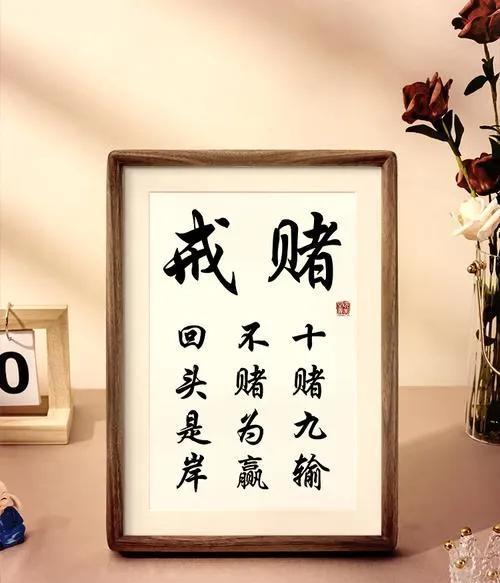 戒赌
十赌九输
不赌为赢
回头是岸
0